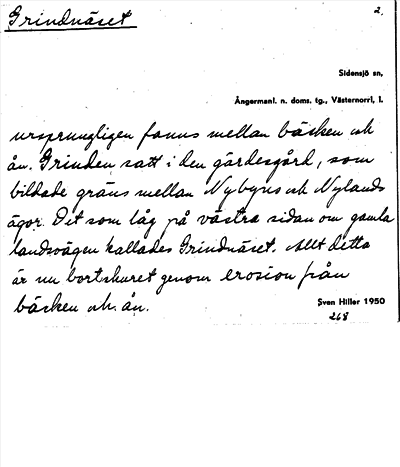 Grindnäset 2.
Sidensjö sn,
Ångermanl. n. doms. tg., Västernorrl, l.
ursprungligen fanns mellan bäcken och
ån. Grinden satt i den gärdesgård, som
bildade gräns mellan Nybyns och Nylands
ägor. Det som låg på västra sidan om gamla
landsvägen kallades Grindnäset. Allt detta
är nu bortskuret genom erosion från
bäcken och ån.
Sven Hiller 1950
268